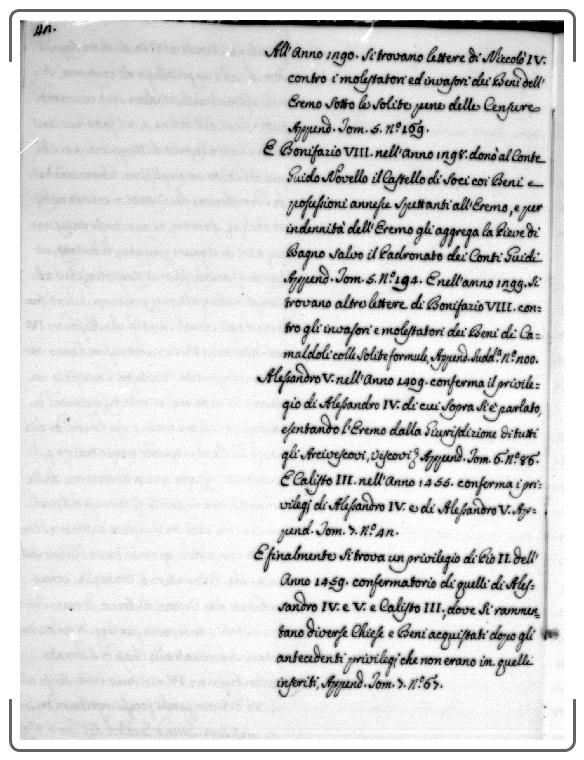 42.
All'Anno 1290. Si trovano lettere di Niccolò IV.
contro i molestatori ed invasori dei Beni dell'
Eremo sotto le Solite pene delle Censure
Append. Tom. 5. N.º 169.
E Bonifazio VIII. nell'Anno 1298. donò al Conte
Guido Novello il Castello di Soci coi Beni e
possessioni annesse Spettanti all'Eremo, e per
indennità dell'Eremo gli aggrega la Pieve di
Bagno salvo il Padronato dei Conti Guidi
Append. Tom. 5. N.º 194. E nell'anno 1299. Si
trovano altre lettere di Bonifazio VIII. con-
tro gli invasori e molestatori dei Beni di Ca-
maldoli colle Solite formule, Append. sudd.º N.º 200.
Alessandro V. nell'Anno 1409. conferma il privile-
gio di Alessandro IV. di cui Sopra Si è parlato,
esentando l'Eremo dalla Giurisdizione di tutti
gli Arcivescovi, vescovi &c. Append. Tom. 6. N.º 86.
E Calisto III. nell'Anno 1455. conferma i pri-
vilegj di Alessandro IV. e di Alessandro V. Ap-
pend. Tom. 7. N.º 42.
E finalmente Si trova un privilegio di Pio II. dell'
Anno 1459. confermatorio di quelli di Ales-
sandro IV. e V. e Calisto III., dove Si rammen-
tano diverse Chiese e Beni acquistati dopo gli
antecedenti privilegj che non erano in quelli
inseriti, Append. Tom. 7. N.º 67.